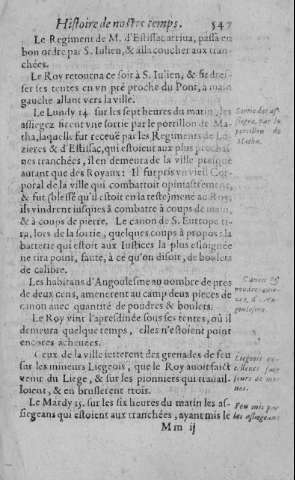 Histoire de nostre temps. 547
Le Regiment de M. d'Estissac arriua, passa en
bon ordre par S. Iulien, & alla coucher aux tran-
chées.
Le Roy retourna ce soir à S. Iulien, & fit dres-
ser ses tentes en vn pré proche du Pont, à main
gauche allant vers la ville.
Le Lundy 14. sur les sept heures du matin, les
assiegez firent vne sortie par le portillon de Ma-
tha, laquelle fut receuë par les Regiments de Lo-
zieres & d'Estissac, qui estoient aux plus procha-
nes tranchées, il en demeura de la ville presque
autant que des Royaux: Il fut pris vn vieil Cor-
poral de la ville qui combattoit opiniastrement,
& fut (blessé qu'il estoit en la teste) mené au Roy;
ils vindrent iusques à combatre à coups de main,
& à coups de pierre. Le canon de S. Eutrope ti-
ra, lors de la sortie, quelques coups à propos: la
batterie qui estoit aux Iustices la plus esloignée
ne tira point, faute, à ce qu'on disoit, de boulets
de calibre.
Les habitans d'Angoulesme au nombre de pres
de deux cens, amenerent au camp deux pieces de
canon auec quantité de poudres & boulets.
Le Roy vint l'apresdinée sous ses tentes, où il
demeura quelque temps, elles n'estoient point
encores acheuées.
Ceux de la ville ietterent des grenades de feu
sur les mineurs Liegeois, que le Roy auoit faict
venir du Liege, & sur les pionniers qui trauail-
loient, & en bruslerent trois.
Le Mardy 15. sur les six heures du matin les as-
siegeans qui estoient aux tranchées, ayant mis le
Mm ij
Sortie des as-
siegez, par le
portillon de
Matha.
Liegeois ex-
cellents fouil-
leurs de mi-
nes.
Feu mis par
les assiegeans